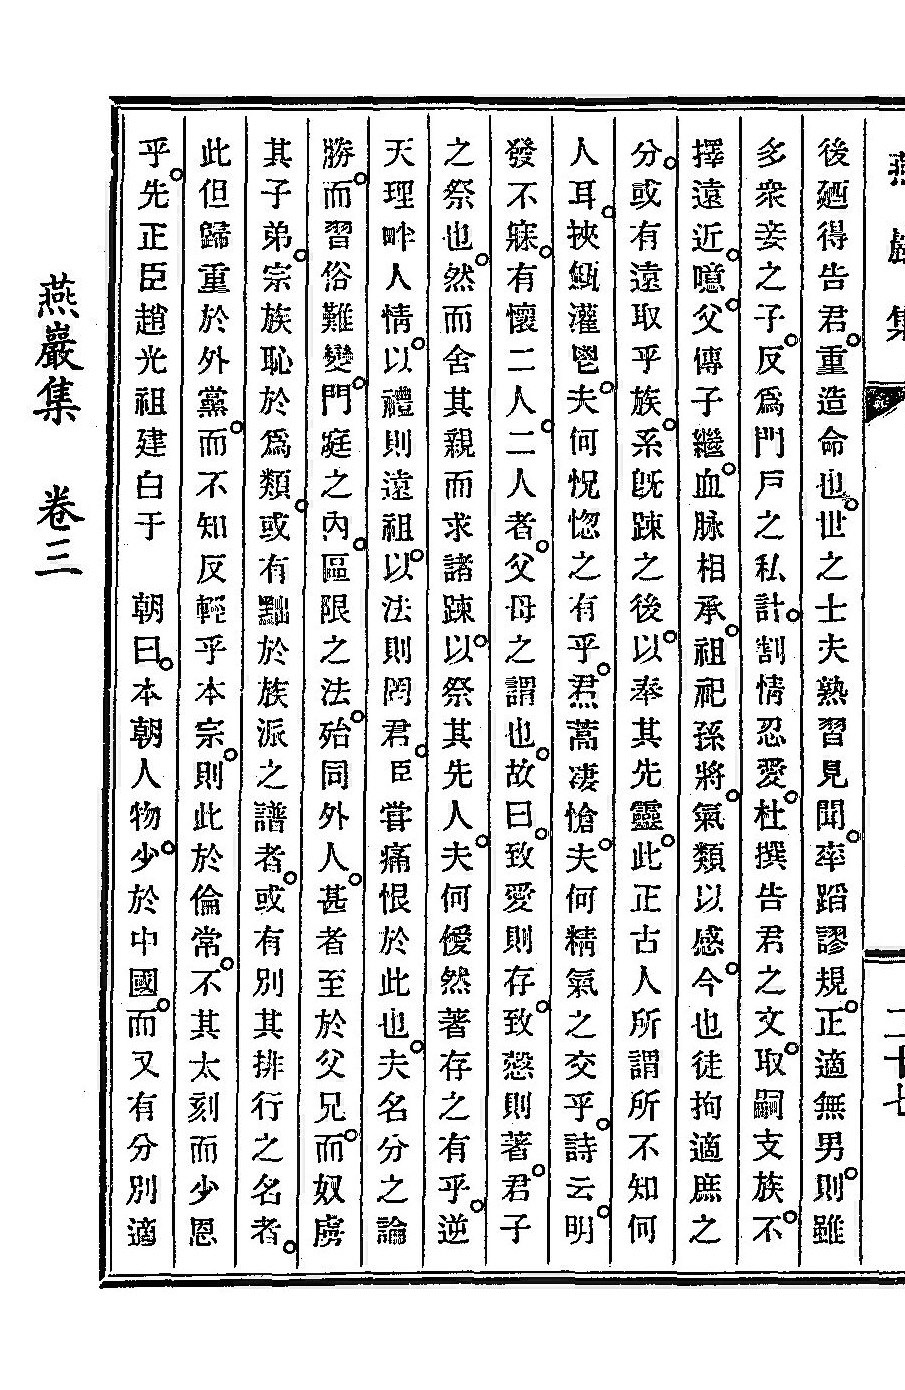 燕巖集 二十七
後廼得告君。重造命也。世之士夫熟習見聞。率蹈謬規。正適無男。則雖
多衆妾之子。反爲門戶之私計。割情忍愛。杜撰告君之文。取嗣支族。不
擇遠近。噫。父傳子繼。血脉相承。祖祀孫將。氣類以感。今也徒拘適庶之
分。或有遠取乎族。系旣踈之後。以奉其先靈。此正古人所謂所不知何
人耳。挾瓻灌鬯。夫何怳惚之有乎。焄蒿凄愴。夫何精氣之交乎。詩云。明
發不寐。有懷二人。二人者。父母之謂也。故曰。致愛則存。致慤則著。君子
之祭也。然而舍其親而求諸踈。以祭其先人。夫何僾然著存之有乎。逆
天理畔人情。以禮則遠祖。以法則罔君。臣甞痛恨於此也。夫名分之論
勝。而習俗難變。門庭之內。區限之法。殆同外人。甚者至於父兄。而奴虜
其子弟。宗族恥於爲類。或有黜於族派之譜者。或有別其排行之名者。
此但歸重於外黨。而不知反輕乎本宗。則此於倫常。不其太刻而少恩
乎。先正臣趙光祖建白于　朝曰。本朝人物。少於中國。而又有分別適
燕巖集　卷三